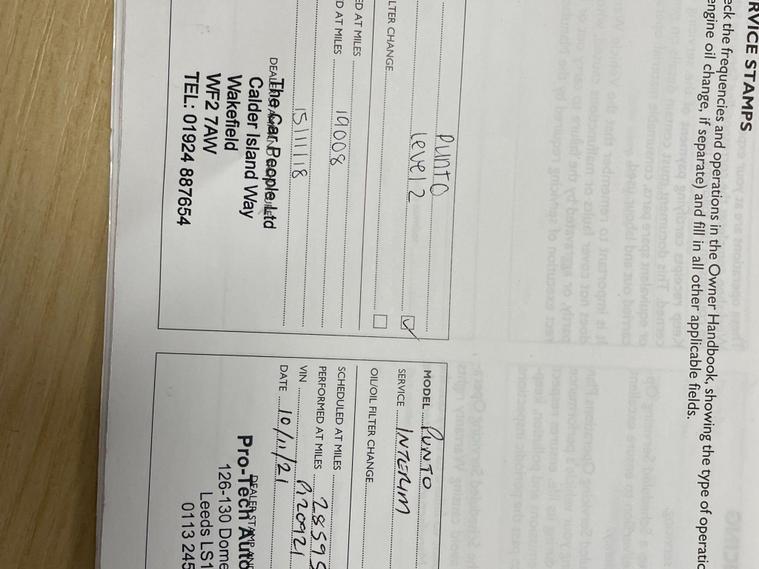 RVICE STAMPS
eck the frequencies and operations in the Owner Handbook, showing the type of operatic
engine oil change, if separate) and fill in all other applicable fields.
Punto
Level 2
LTER CHANGE
ED AT MILES
D AT MILES 19008
15/11/18
The Car People Ltd
Calder Island Way
Wakefield
WF2 7AW
TEL: 01924 887654
MODEL PUNTO
SERVICE INTERIM
OIL/OIL FILTER CHANGE
SCHEDULED AT MILES
PERFORMED AT MILES 28595
VIN
DATE 10/11/21
DEALER STAMP AND
Pro-Tech Auto
126-130 Dome
Leeds LS1
0113 245